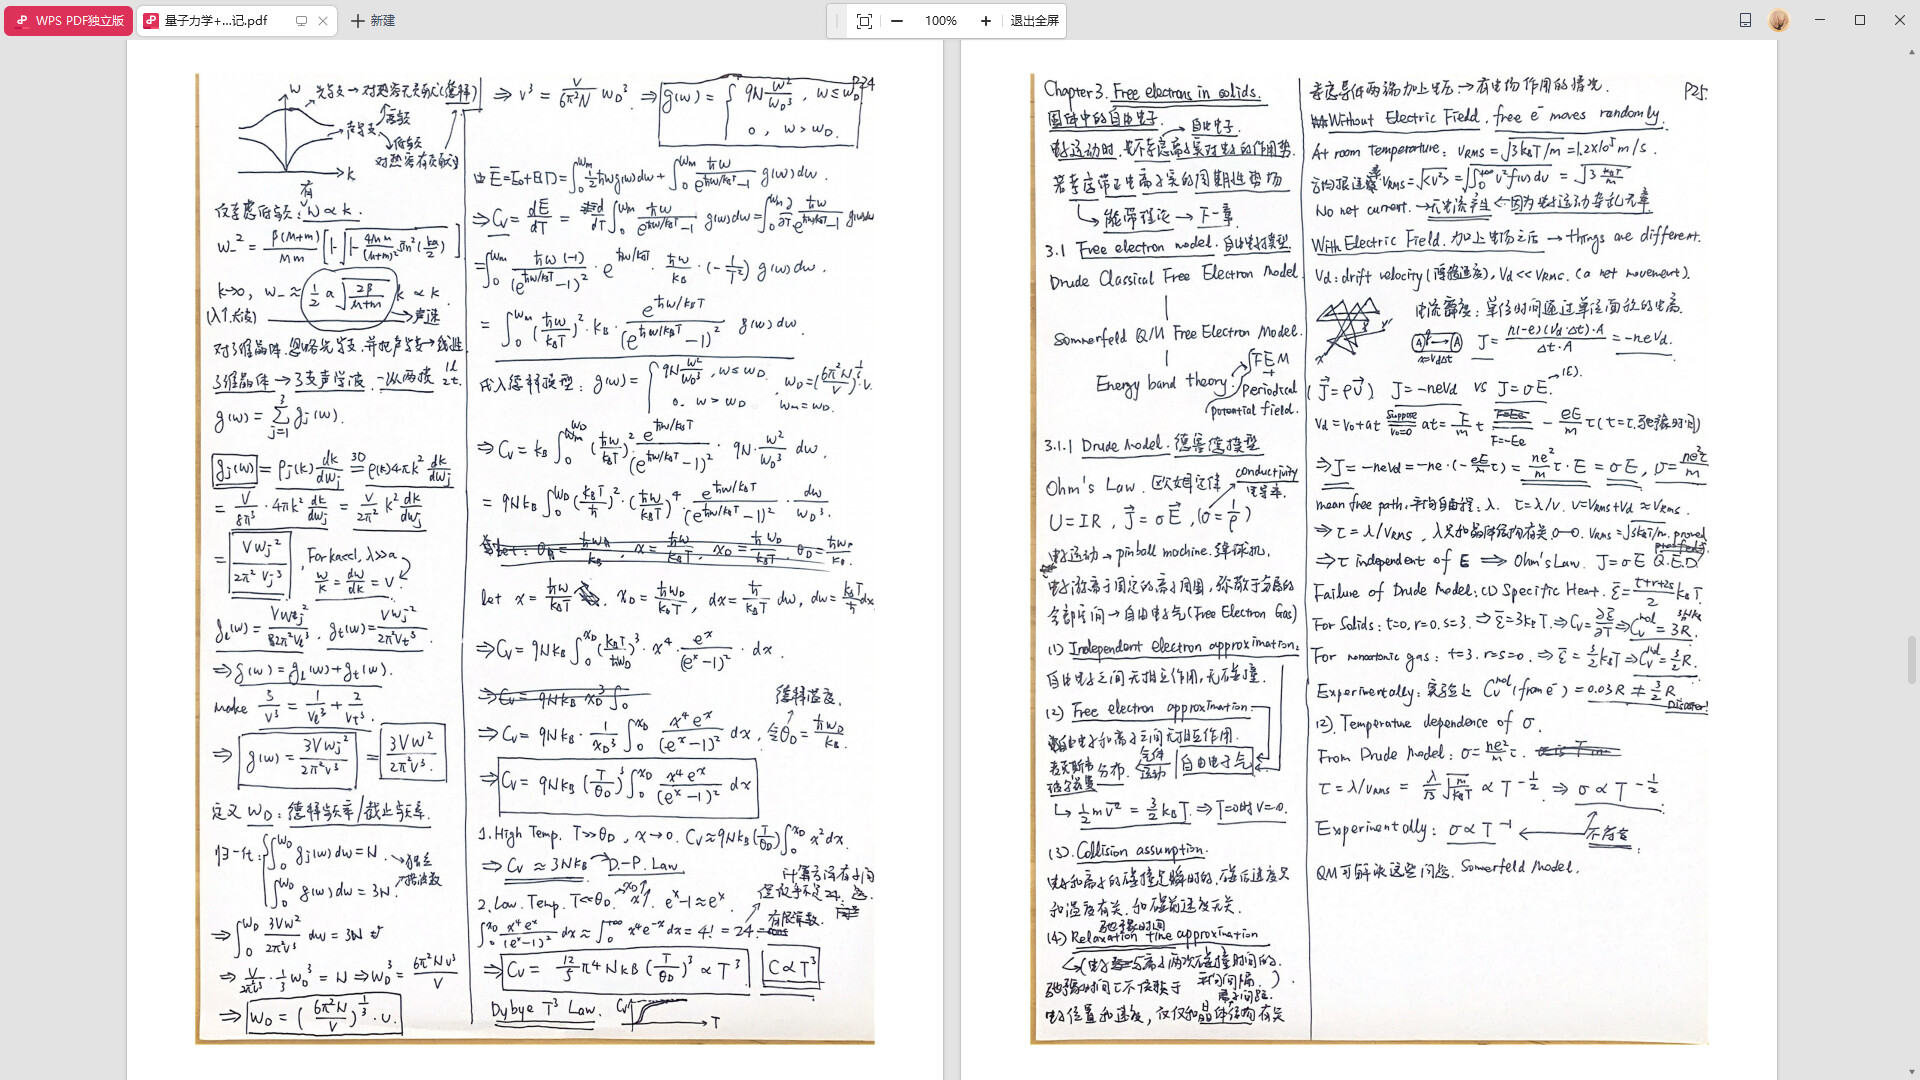 WPS PDF独立版
量子力学+...记.pdf
新建
100%
退出全屏
P24
w
光学支→对热容无贡献(德拜)
高频
声学支
低频
对热容有贡献
k
仅考虑低频: w ∝ k.
w_-² = β(M+m)/Mm [1-√(1-4Mm/(M+m)² sin²(ka/2))]
k→0, w_- ≈ (1/2 a √(2β/(M+m))) k ∝ k.
(λ↑ 长波) →声速
对3维晶体,忽略光学支,并把声学支→线性
3维晶体→3支声学波. 一纵两横 1l 2t.
g(w) = Σ_{j=1}^{3} g_j(w).
g_j(w) = ρ_j(k) dk/dw_j =^{3D} ρ(k)4πk² dk/dw_j
= V/8π³ · 4πk² dk/dw_j = V/2π² k² dk/dw_j
= Vw_j²/2π²v_j³, For ka≪1, λ≫a
w/k = dw/dk = v
g_l(w) = Vw_l²/2π²v_l³, g_t(w) = Vw_j²/2π²v_t³.
⇒ g(w) = g_l(w)+g_t(w).
make 3/v³ = 1/v_l³ + 2/v_t³.
⇒ g(w) = 3Vw_j²/2π²v³ = 3Vw²/2π²v³.
定义 w_D: 德拜频率/截止频率.
归一化: ∫_0^{w_D} g_j(w)dw = N.
∫_0^{w_D} g(w)dw = 3N.
⇒ ∫_0^{w_D} 3Vw²/2π²v³ dw = 3N
⇒ V/2π²v³ · 1/3 w_D³ = N ⇒ w_D³ = 6π²Nv³/V
⇒ w_D = (6π²N/V)^{1/3} · v.
⇒ v³ = V/6π²N w_D³. ⇒ g(w) = { 9N w²/w_D³, w ≤ w_D
0, w > w_D.
由 E̅ = E_0+E(T) = ∫_0^{w_m} ½ħw g(w)dw + ∫_0^{w_m} ħw/(e^{ħw/k_BT}-1) g(w)dw.
⇒ C_V = dE̅/dT = d/dT ∫_0^{w_m} ħw/(e^{ħw/k_BT}-1) g(w)dw = ∫_0^{w_m} ∂/∂T ħw/(e^{ħw/k_BT}-1) g(w)dw
= ∫_0^{w_m} ħw(-1)/(e^{ħw/k_BT}-1)² · e^{ħw/k_BT} · ħw/k_B · (-1/T²) g(w)dw.
= ∫_0^{w_m} (ħw/k_BT)² · k_B · e^{ħw/k_BT}/(e^{ħw/k_BT}-1)² g(w)dw.
代入德拜模型: g(w) = { 9N w²/w_D³, w ≤ w_D. w_D = (6π²N/V)^{1/3}·v.
0. w > w_D w_m = w_D.
⇒ C_V = k_B ∫_0^{w_D} (ħw/k_BT)² e^{ħw/k_BT}/(e^{ħw/k_BT}-1)² · 9N · w²/w_D³ dw.
= 9Nk_B ∫_0^{w_D} (k_BT/ħ)² · (ħw/k_BT)⁴ · e^{ħw/k_BT}/(e^{ħw/k_BT}-1)² · dw/w_D³.
let x = ħw/k_BT, x_D = ħw_D/k_BT, dx = ħ/k_BT dw, dw = k_BT/ħ dx
⇒ C_V = 9Nk_B ∫_0^{x_D} (k_BT/ħw_D)³ · x⁴ · e^x/(e^x-1)² · dx.
⇒ C_V = 9Nk_B x_D³ ∫_0
德拜温度.
⇒ C_V = 9Nk_B · 1/x_D³ ∫_0^{x_D} x⁴e^x/(e^x-1)² dx, 令θ_D = ħw_D/k_B.
⇒ C_V = 9Nk_B (T/θ_D)³ ∫_0^{x_D} x⁴e^x/(e^x-1)² dx
1. High Temp. T≫θ_D, x→0. C_V ≈ 9Nk_B(T/θ_D)³ ∫_0^{x_D} x²dx.
⇒ C_V ≈ 3Nk_B → D.-P. Law.
2. Low. Temp. T≪θ_D. x_D↑ x↑, e^x-1≈e^x.
∫_0^{x_D} x⁴e^x/(e^x-1)² dx ≈ ∫_0^{+∞} x⁴e^{-x}dx = 4! = 24.
⇒ C_V = 12/5 π⁴Nk_B (T/θ_D)³ ∝ T³ C ∝ T³
Dybye T³ Law. C_V T
P25.
Chapter 3. Free electrons in solids.
固体中的自由电子.
自由电子.
电子运动时,也不考虑离子实对电子的作用势.
若考虑带正电离子实的周期性势场
能带理论→下一章
3.1 Free electron model. 自由电子模型
Drude Classical Free Electron Model
Sommerfeld QM Free Electron Model.
Energy band theory. FEM
+
Periodical
potential field.
3.1.1 Drude Model. 德鲁德模型
Ohm's Law. 欧姆定律 conductivity
电导率.
U = IR, J = σE, (σ = 1/ρ)
电子运动→pinball machine. 弹球机.
电子游离于固定的离子周围,弥散于金属的
全部空间→自由电子气(Free Electron Gas)
(1) Independent electron approximation.
自由电子之间无相互作用,无碰撞.
(2) Free electron approximation.
自由电子和离子之间无相互作用.
分布. 气体运动 自由电子气
½mv̅² = 3/2 k_BT. ⇒ T=0时 v=0.
(3). Collision assumption.
电子和离子的碰撞是瞬时的. 碰后速度只
和温度有关. 和碰前速度无关.
弛豫时间
(4) Relaxation time approximation
(电子与离子两次碰撞时间的平均间隔.)
弛豫时间τ不依赖于
电子位置和速度, 仅仅和晶体结构有关
考虑导体两端加上电压→有电场作用的情况.
Without Electric Field, free e⁻ moves randomly.
At room temperature: v_RMS = √(3k_BT/m) = 1.2×10⁵ m/s.
方均根速率 v_RMS = √<v²> = √(∫_0^{+∞} v²f(v)dv) = √(3 k_BT/m)
No net current. →无电流产生←因为电子运动杂乱无章
With Electric Field. 加上电场之后→things are different.
Vd: drift velocity (漂移速度), Vd << V_RMS. (a net movement).
电流密度: 单位时间通过单位面积的电荷.
A A x=v_dΔt J = n(-e)(v_d·Δt)·A/Δt·A = -nev_d.
(J = ρv) J = -nev_d vs J = σE.
v_d = v_0+at Suppose v_0=0 at = F/m t F=-Ee - eE/m τ (t=τ.弛豫时间)
⇒ J = -nev_d = -ne·(-eE/m τ) = ne²/m τ · E = σE, σ = ne²τ/m
mean free path, 平均自由程: λ. τ = λ/v. v = v_RMS+v_d ≈ v_RMS.
⇒ τ = λ/v_RMS, λ只和晶体结构有关 v_RMS = √3k_BT/m. proved
⇒ τ independent of E ⇒ Ohm's Law. J = σE Q.E.D.
Failure of Drude Model: (1) Specific Heat. ε̅ = (t+r+2s)/2 k_BT.
For Solids: t=0, r=0, s=3. ⇒ ε̅ = 3k_BT. ⇒ C_V = ∂ε̅/∂T ⇒ C_V^{mol} = 3R.
For monoatomic gas: t=3. r=s=0. ⇒ ε̅ = 3/2 k_BT ⇒ C_V^{mol} = 3/2 R.
Experimentally: 实验上 C_V^{mol} (from e⁻) = 0.03R ≠ 3/2 R
Disaster!
(2). Temperature dependence of σ.
From Drude Model: σ = ne²/m τ.
τ = λ/v_RMS = λ/√3 √(m/k_BT) ∝ T^{-1/2} ⇒ σ ∝ T^{-1/2}
Experimentally: σ ∝ T⁻¹ 不符合
QM可解决这些问题. Somerfeld Model.